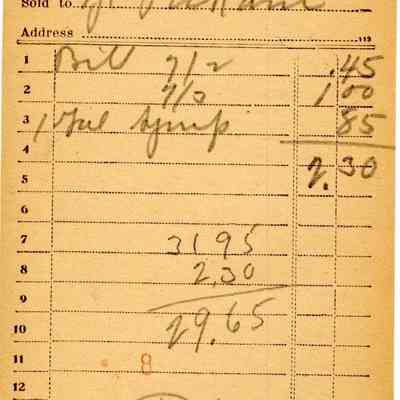 Sold to
Address 113
1 Bill 7/2 .45
2 7/3 1 00
3 1 Gal Syrup 85
4
5 2.30
6
7 31 95
8 2.30
9
10 29.65
11 8
12